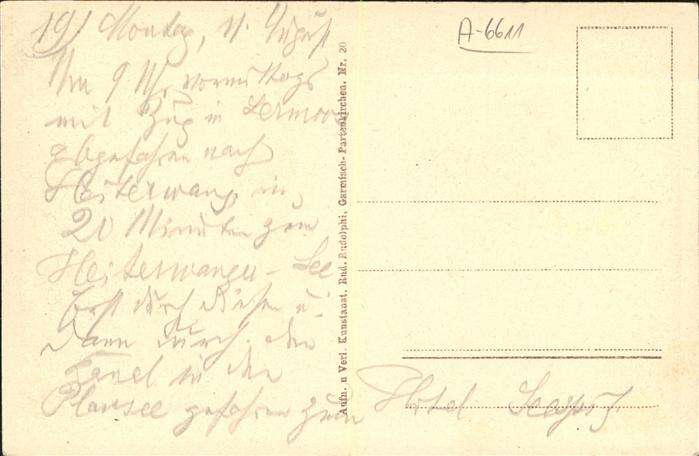 19) Montag, 11. August
Um 9 Uhr vormittags
mit Zug in Lermoos
abgefahren nach
Heiterwang, in
20 Minuten zum
Heiterwanger-See
Erst durch diesen u.
dann durch den
Kanal in den
Plansee gefahren zum
Hotel Seespitz
A-6611
Aufn. u Verl. Kunstanst. Rud. Rudolphi, Garmisch-Partenkirchen. Nr. 20